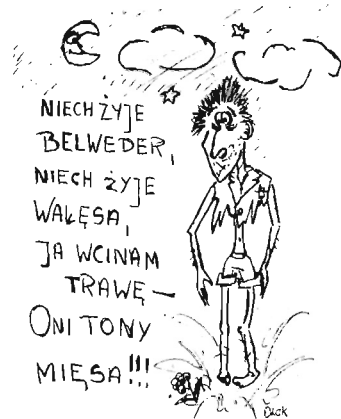 NIECH ŻYJE
BELWEDER,
NIECH ŻYJE
WAŁĘSA,
JA WCINAM
TRAWĘ —
ONI TONY
MIĘSA!!!